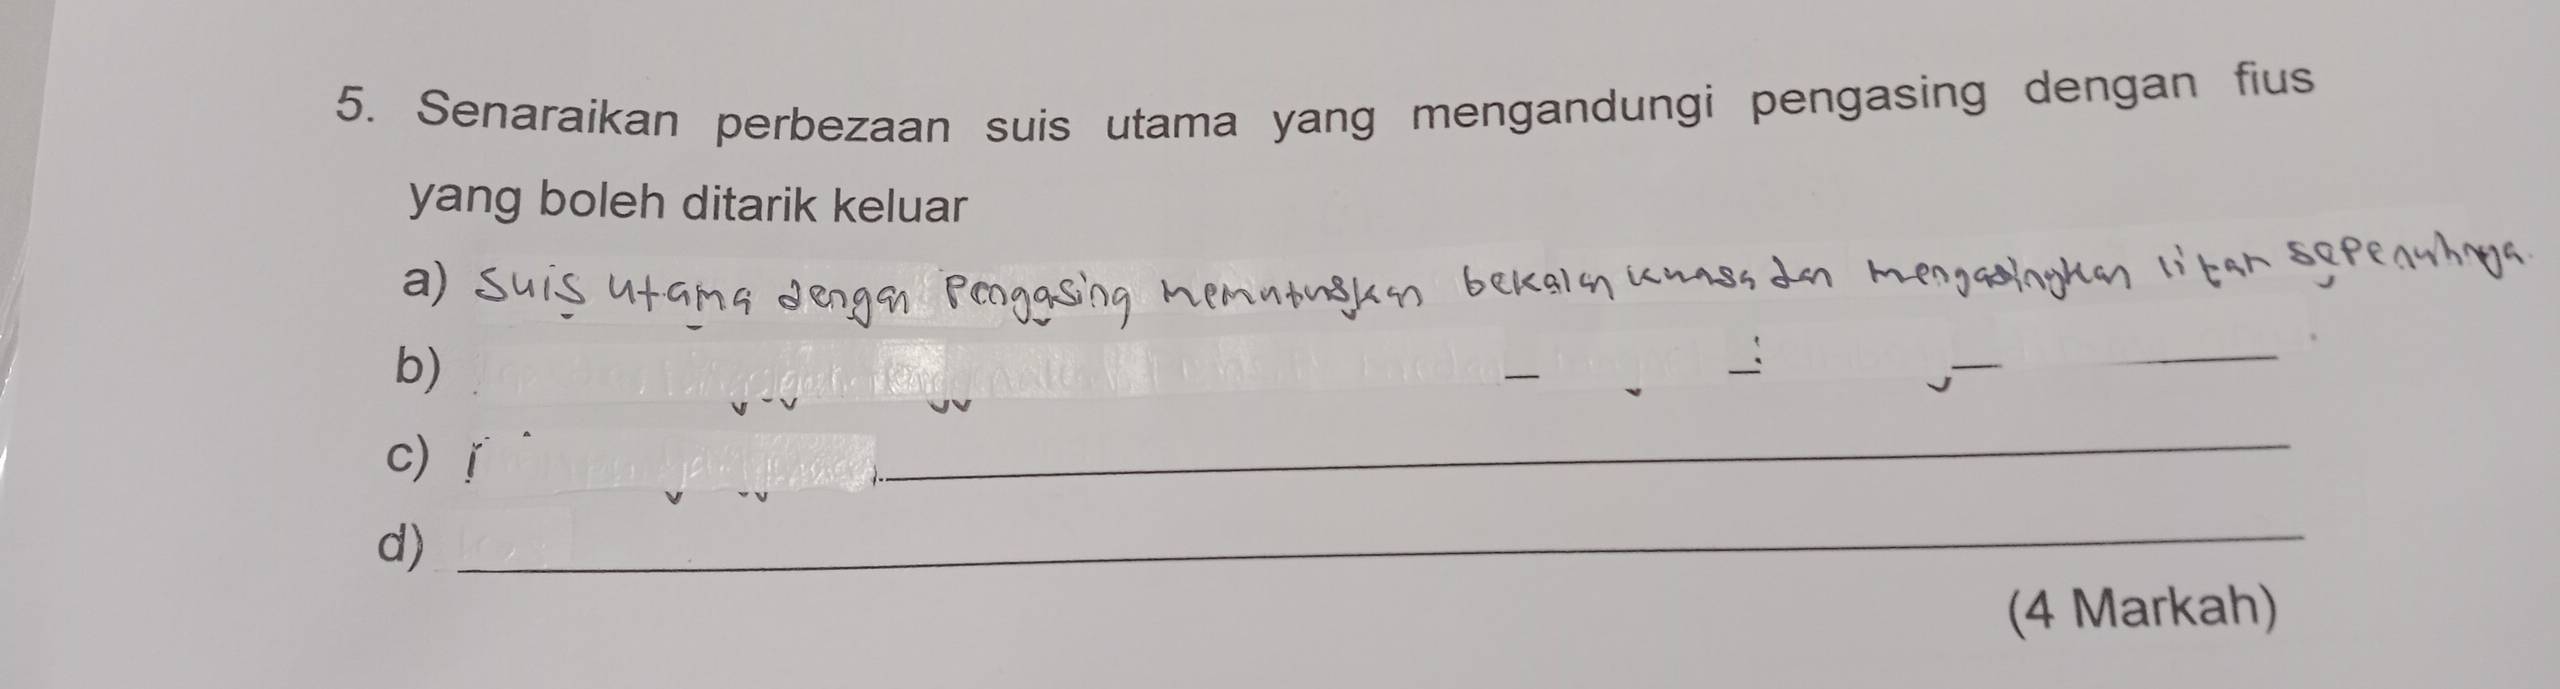 5. Senaraikan perbezaan suis utama yang mengandungi pengasing dengan fius
yang boleh ditarik keluar
a) Suis utama dengan pengasing memutuskan bekalan kuasa dan mengasingkan litar sepenuhnya.
b)
c)
d)
(4 Markah)